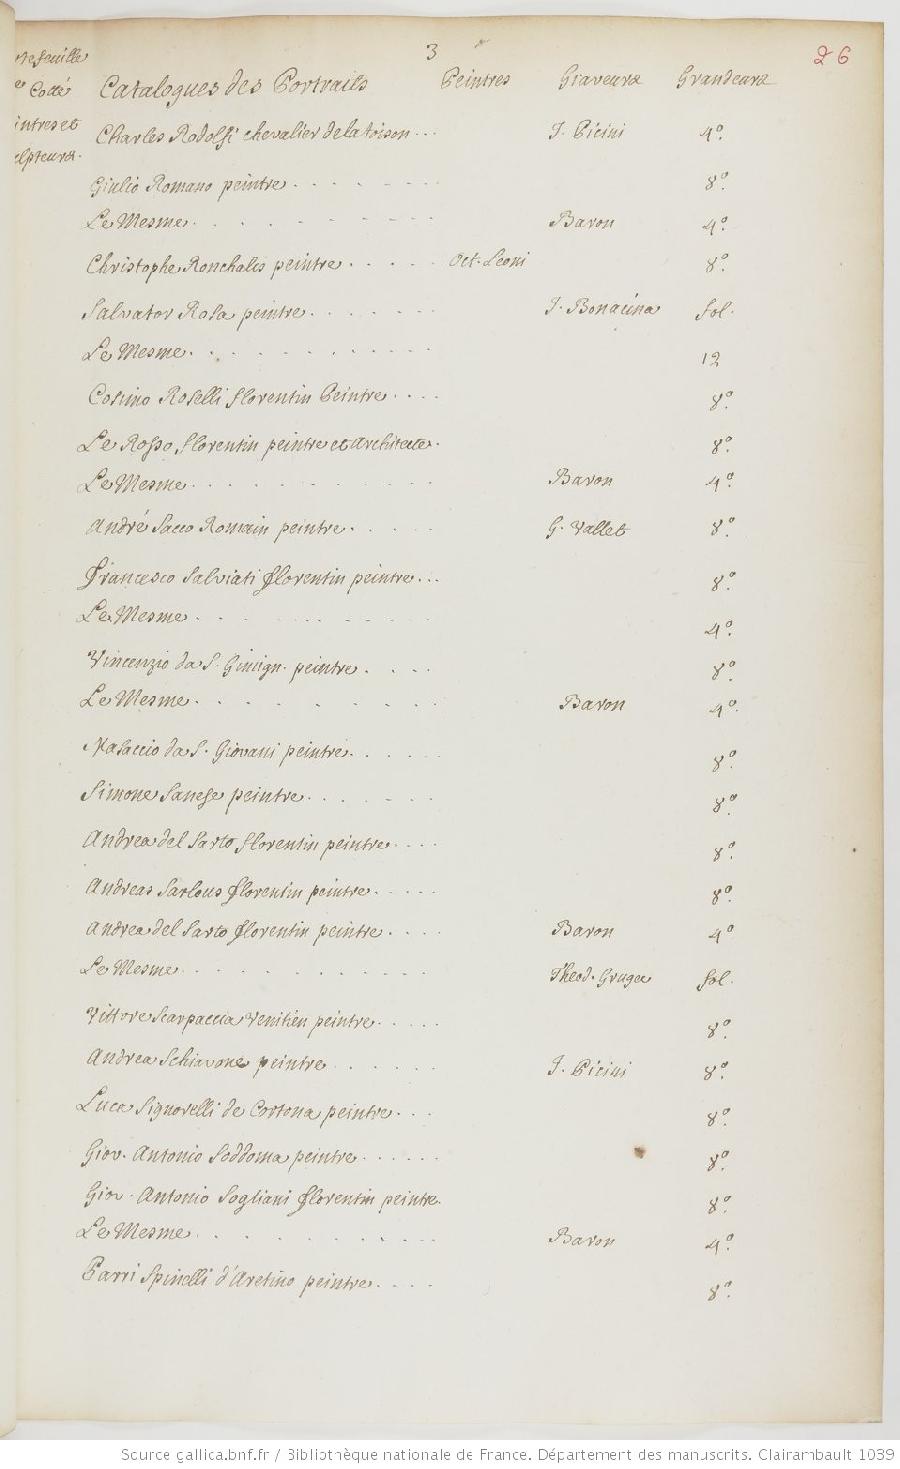 3
26
Catalogues des Portraits Peintres Graveurs Grandeurs
Cotté
Charles Rodolfi chevalier de la toison... J. Picini 4º.
Giulio Romano peintre 8º.
Le Mesme Baron 4º.
Christophe Ronchalis peintre Oct. Leoni 8º.
Salvator Rosa peintre J. Bonacina fol.
Le Mesme 12
Cosimo Roselli florentin Peintre 8º.
Le Rosso florentin peintre et architecte. 8º.
Le Mesme Baron 4º.
André Sacco Romain peintre G. Vallet 8º.
Francesco Salviati florentin peintre... 8º.
Le Mesme 4º.
Vincenzio da S. Gimign. peintre 8º.
Le Mesme Baron 4º.
Masaccio da S. Giovani peintre 8º.
Simone Sanese peintre 8º.
Andrea del Sarto florentin peintre 8º.
Andreas florentin peintre 8º.
Andrea del Sarto florentin peintre Baron 4º
Le Mesme Theod. fol.
Vittore Scarpaccia Venitien peintre 8º.
Andrea Schiavone peintre J. Picini 8º.
Luca Signorelli de Cortona peintre 8º.
Giov. Antonio Soddoma peintre 8º.
Giov. Antonio Sogliani florentin peintre. 8º.
Le Mesme Baron 4º.
Parri Spinelli d'Aretino peintre 8º.
Source gallica.bnf.fr / Bibliothèque nationale de France. Département des manuscrits. Clairambault 1039